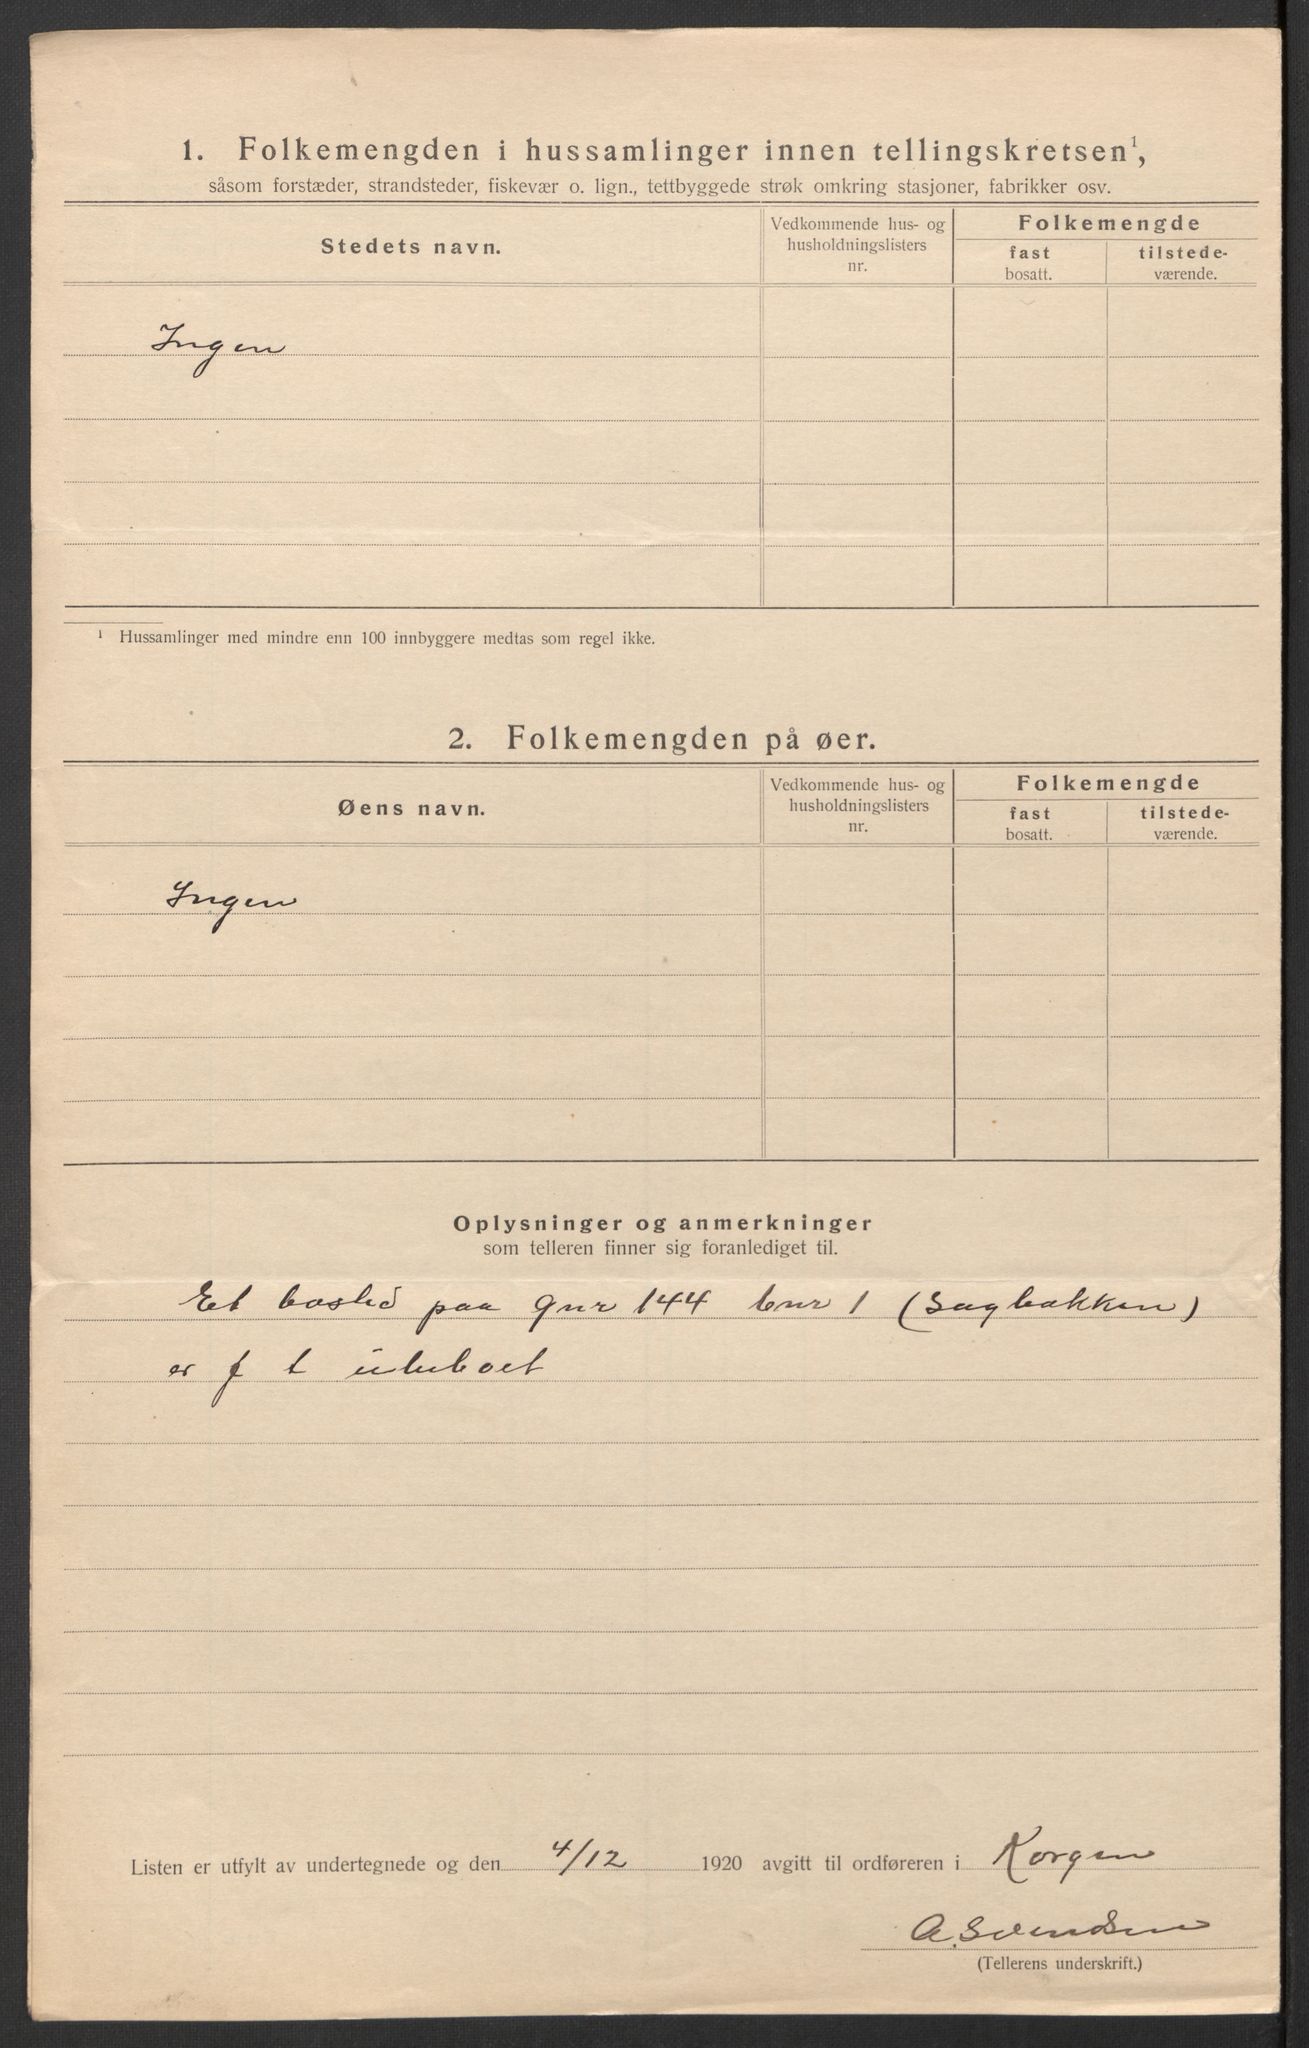 1. Folkemengden i hussamlinger innen tellingskretsen¹,
såsom forstæder, strandsteder, fiskevær o. lign., tettbyggede strøk omkring stasjoner, fabrikker osv.
Stedets navn.
Vedkommende hus- og
husholdningslisters
nr.
Folkemengde
fast
bosatt.
tilstede-
værende.
Ingen
¹ Hussamlinger med mindre enn 100 innbyggere medtas som regel ikke.
2. Folkemengden på øer.
Øens navn.
Vedkommende hus- og
husholdningslisters
nr.
Folkemengde
fast
bosatt.
tilstede-
værende.
Ingen
Oplysninger og anmerkninger
som telleren finner sig foranlediget til.
Et bosted paa gnr 144 bnr 1 (Sagbakken)
er f t ubeboet
Listen er utfylt av undertegnede og den 4/12 1920 avgitt til ordføreren i Korgen
A. Svendsen
(Tellerens underskrift.)